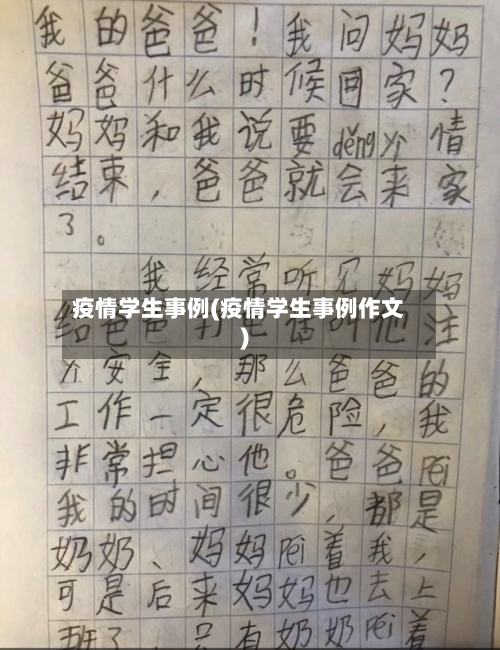 我的爸爸！我问妈妈
爸爸什么时候回家？
妈妈和我说要děng yì情
结束，爸爸就会来家
了。
我经常听见妈妈
疫情学生事例(疫情学生事例作文
)
给爸爸打电话叫他注
yì安全，那么爸爸的
工作一定很危险，我
非常担心他。爸爸péi
我的时间很少，都是
奶奶、妈妈péi着我，
可是后来妈妈也去上
班了，只有奶奶péi着